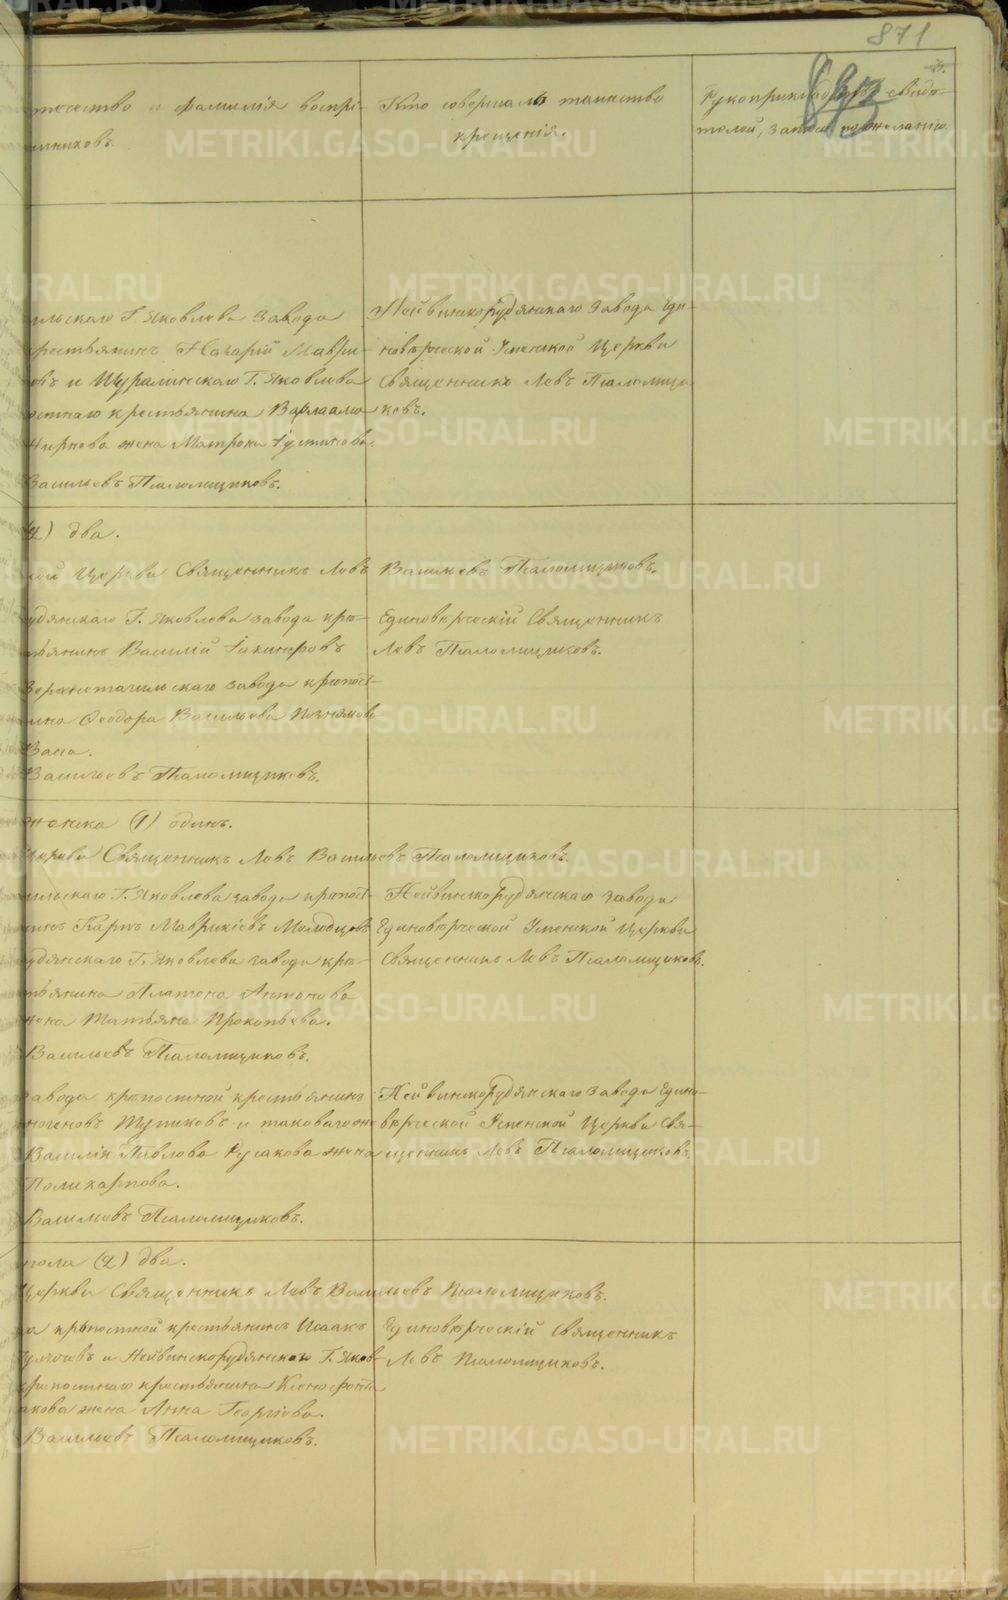 871
893
течество и фамилія воспрі-
емниковъ.
Кто совершалъ таинство
крещенія.
Рукоприкладство свидѣ-
телей, записи по желанію.
ильскаго Г. Яковлева завода
крестьянинъ Назарій Маври-
овъ и Шуралинскаго Г. Яковлева
остнаго крестьянина Варлаама
Чиркова жена Матрона Іустинова.
Васильевъ Псаломщиковъ.
Нейвинскорудянскаго завода Еди-
новѣрческой Успенской Церкви
Священникъ Левъ Псаломщи-
ковъ.
(2) два.
кой Церкви Священникъ Левъ Васильевъ Псаломщиковъ.
удянскаго Г. Яковлева завода крѣ-
тьянинъ Василій
Верхнетагильскаго завода крѣпост-
ина Ѳеодора Васильева
Васильевъ Псаломщиковъ.
Единовѣрческій Священникъ
Левъ Псаломщиковъ.
женска (1) одинъ.
Церкви Священникъ Левъ Васильевъ Псаломщиковъ.
ильскаго Г. Яковлева завода крѣпост-
инъ Карпъ Маврикіевъ Молодцовъ
удянскаго Г. Яковлева завода крѣ-
тьянина Платона Антонова
жена Татьяна Прокопьева.
Васильевъ Псаломщиковъ.
Нейвинскорудянскаго завода
Единовѣрческой Успенской Церкви
Священникъ Левъ Псаломщиковъ.
завода крѣпостной крестьянинъ
Тупиковъ и таковаго же
Василія Павлова Русакова жена
Поликарпова.
Васильевъ Псаломщиковъ.
Нейвинскорудянскаго завода Едино-
вѣрческой Успенской Церкви Свя-
щенникъ Левъ Псаломщиковъ.
пола (2) два.
Церкви Священникъ Левъ Васильевъ Псаломщиковъ.
да крѣпостной крестьянинъ Исаакъ
и Нейвинскорудянскаго Г. Яков-
крѣпостнаго крестьянина Ксенофонта
акова жена Анна Георгіева.
Васильевъ Псаломщиковъ.
Единовѣрческій Священникъ
Левъ Псаломщиковъ.
METRIKI.GASO-URAL.RU